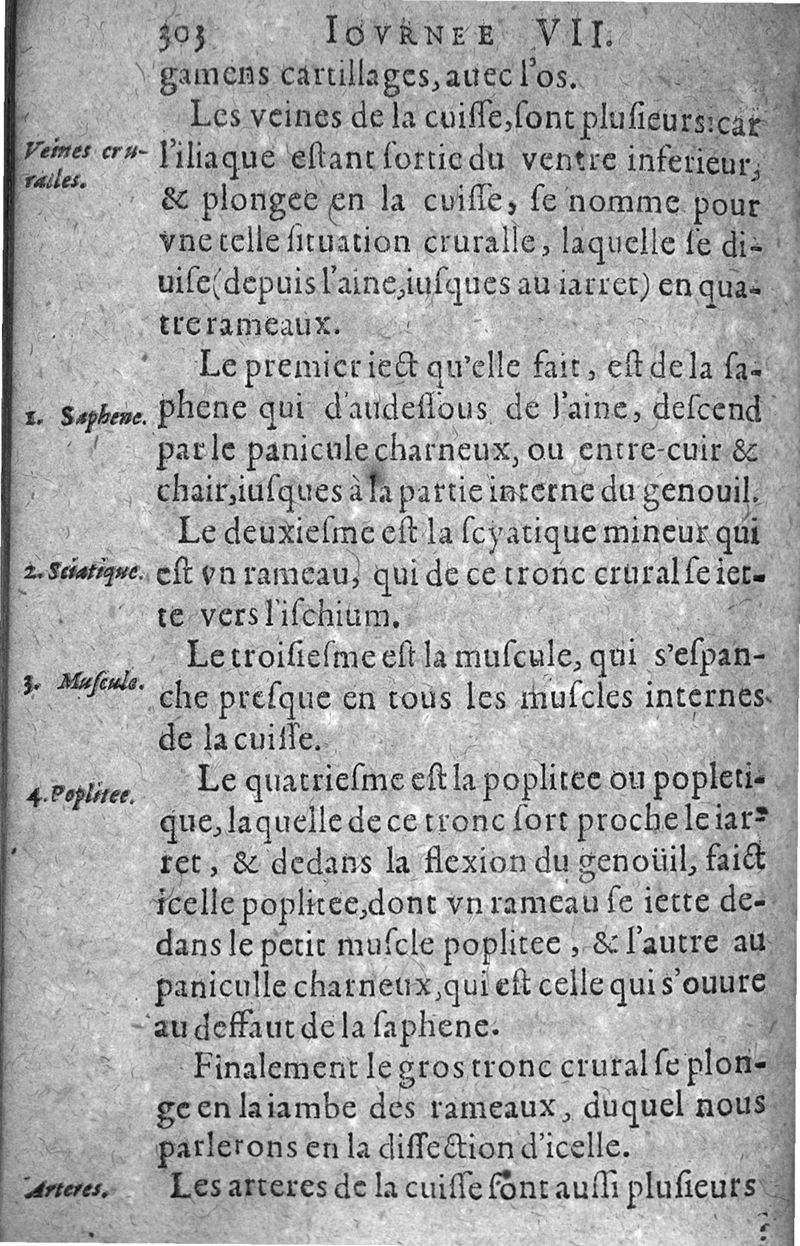 303 IOVRNEE VII.
gamens cartillages, auec l'os.
Les veines de la cuiſſe, ſont pluſieurs: car
Veines cru-
ralles.
l'iliaque eſtant ſortie du ventre inferieur,
& plongee en la cuiſſe, ſe nomme pour
vne telle ſituation cruralle, laquelle ſe di-
uiſe (depuis l'aine, iuſques au iarret) en qua-
tre rameaux.
Le premier iect qu'elle fait, eſt de la ſa-
1. Saphene.
phene qui d'audeſſous de l'aine, deſcend
par le panicule charneux, ou entre-cuir &
chair, iuſques à la partie interne du genouil.
Le deuxieſme eſt la ſcyatique mineur qui
2. Sciatique.
eſt vn rameau, qui de ce tronc crural ſe iet-
te vers l'iſchium.
Le troiſieſme eſt la muſcule, qui s'eſpan-
3. Muſcule.
che preſque en tous les muſcles internes
de la cuiſſe.
Le quatrieſme eſt la poplitee ou popleti-
4. Poplitee.
que, laquelle de ce tronc ſort proche le iar-
ret, & dedans la flexion du genoüil, faict
icelle poplitee, dont vn rameau ſe iette de-
dans le petit muſcle poplitee, & l'autre au
paniculle charneux, qui eſt celle qui s'ouure
au deffaut de la ſaphene.
Finalement le gros tronc crural ſe plon-
ge en la iambe des rameaux, duquel nous
parlerons en la diſſection d'icelle.
Arteres.
Les arteres de la cuiſſe ſont auſſi pluſieurs